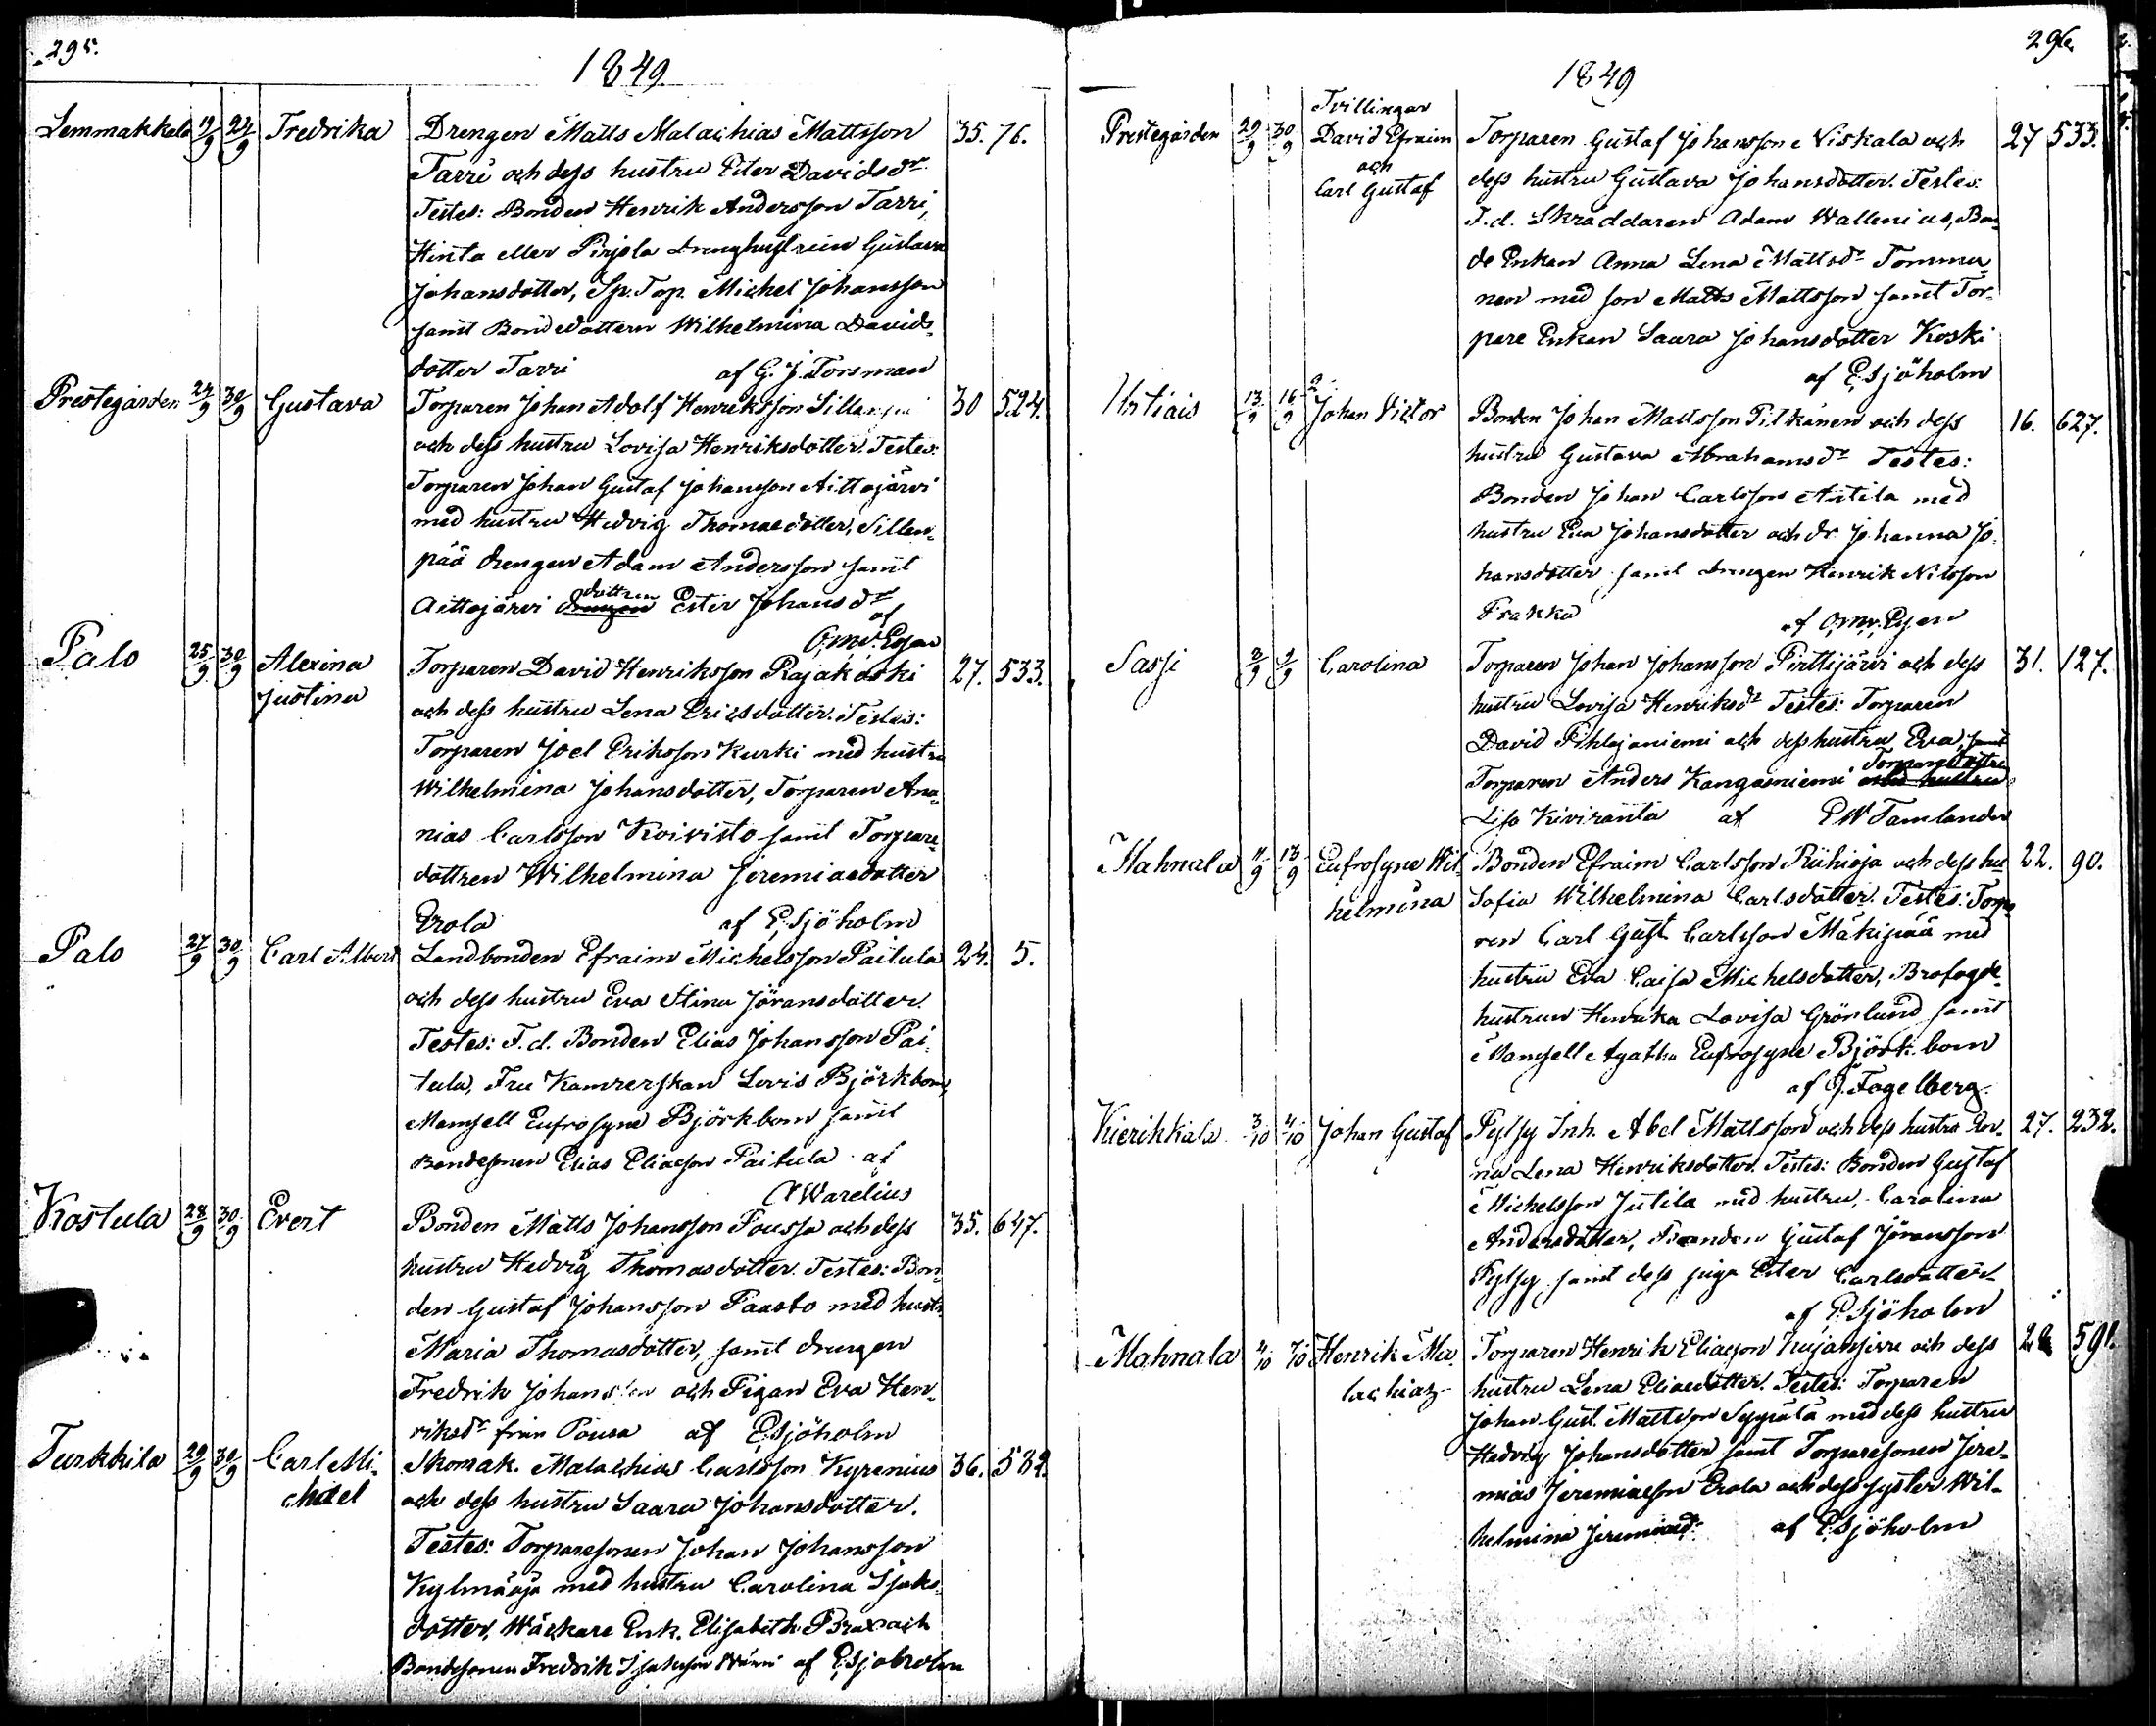 295.
1849.
Lemmakkala 19/9 24/9 Fredrika Drengen Matts Malachias Mattsson 35. 76.
Tarri och dess hustru Ester Davidsdr
Testes: Bonden Henrik Andersson Tarri,
Hinta eller Pirjola drenghustrun Gustava
Johansdotter, Sp. Torp. Michel Johansson
samt Bondedottern Wilhelmina Davids-
dotter Tarri af G. J. Forsman
Prestegården 24/9 30/9 Gustava Torparen Johan Adolf Henriksson 30 524.
och dess hustru Lovisa Henriksdotter. Testes:
Torparen Johan Gustaf Johansson Aittojärvi
med hustru Hedvig Thomasdotter, Sillen-
pää drengen Adam Andersson samt
Aittojärvi dottren Ester Johansdr
af
Palo 25/9 30/9 Alexina Torparen David Henriksson Rajakoski 27. 533.
Justina och dess hustru Lena Ericsdotter. Testes:
Torparen Joel Eriksson Kurki med hustru
Wilhelmina Johansdotter, Torparen Ana-
nias Carlsson Koivisto samt Torpare
dottren Wilhelmina Jeremiaedotter
Erola af E. Sjöholm
Palo 27/9 30/9 Carl Albert Landbonden Efraim Michelsson Paitula 24. 5.
och dess hustru Eva Stina Jöransdotter.
Testes: F. d. Bonden Elias Johansson Pai-
tula, Fru Kamrerskan Lovis Björkbom,
Mamsell Eufrosyne Björkbom samt
Bondesonen Elias Eliaeson Paitula af
A Warelius
Kostula 28/9 30/9 Evert Bonden Matts Johansson Poussa och dess 35. 647.
hustru Hedvig Thomasdotter. Testes: Bon-
den Gustaf Johansson Paasto med hustr
Maria Thomasdotter, samt drengen
Fredrik Johansson och Pigan Eva Hen-
riksdr från Pousa af E. Sjöholm
Turkkila 29/9 30/9 Carl Mi- Skomak. Malachias Carlsson Kyrenius 36. 582.
chael och dess hustru Saara Johansdotter.
Testes: Torparesonen Johan Johansson
Kylmäoja med hustru Carolina Isaks-
dotter, Wäckare Enk. Elisabeth Brax och
Bondesonen Fredrik Isaksson af E. Sjöholm
296.
1849
Tvillingar
Prestegården 29/9 30/9 David Efraim Torparen Gustaf Johansson Niskala och 27 533.
och
Carl Gustaf dess hustru Gustava Johansdotter. Testes:
F. d. Skräddaren Adam Wallenius, Bon-
de Enkan Anna Lena Mattsdr Tommu-
nen med son Matts Mattsson samt Tor-
pare Enkan Saara Johansdotter Koski
af E. Sjöholm
Urtiais 13/9 16/9 Johan Victor Bonden Johan Mattsson Pitkänen och dess 16. 627.
hustru Gustava Abrahamsdr Testes:
Bonden Johan Carlsson Antila med
hustru Eva Johansdotter och dr Johanna Jo-
hansdotter, samt drengen Henrik Nilsson
Prakka af
Sassi 3/9 9/9 Carolina Torparen Johan Johansson Pirttijärvi och dess 31. 127.
hustru Lovisa Henriksdr Testes: Torparen
David Pihlajaniemi och dess hustru Eva, samt
Torparen Anders Kangasniemi Torparedottren med hustru
Lisa Kiviranta af E W Tamlander
Mahnala 11/9 13/9 Eufrosyne Wil- Bonden Efraim Carlsson Riihioja och dess hu 22. 90.
helmina Sofia Wilhelmina Carlsdotter. Testes: Torpa
ren Carl Gust. Carlsson Mäkipää med
hustru Eva Caisa Michelsdotter, Brofogde-
hustrun Henrika Lovisa Grönlund samt
Mamsell Agatha Eufrosyne Björkbom
af G. Fogelberg.
Kierikkala 3/10 4/10 Johan Gustaf Pylsy Inh. Abel Mattsson och dess hustru 27. 232.
Lena Henriksdotter. Testes: Bonden Gustaf
Michelsson Jutila med hustru, Carolina
Andersdotter, Bonden Gustaf Jöransson
Pylsy samt dess piga Ester Carlsdotter
af E. Sjöholm
Mahnala 4/10 7/10 Henrik Ma- Torparen Henrik Eliaeson Kujansivu och dess 28 591.
lachias hustru Lena Eliaedotter. Testes: Torparen
Johan Gust. Mattsson Seppälä med dess hustru
Hedvig Johansdotter samt Torparesonen Jere-
mias Jeremiaeson Erola och dess syster Wil-
helmina Jeremiaedr. af E. Sjöholm